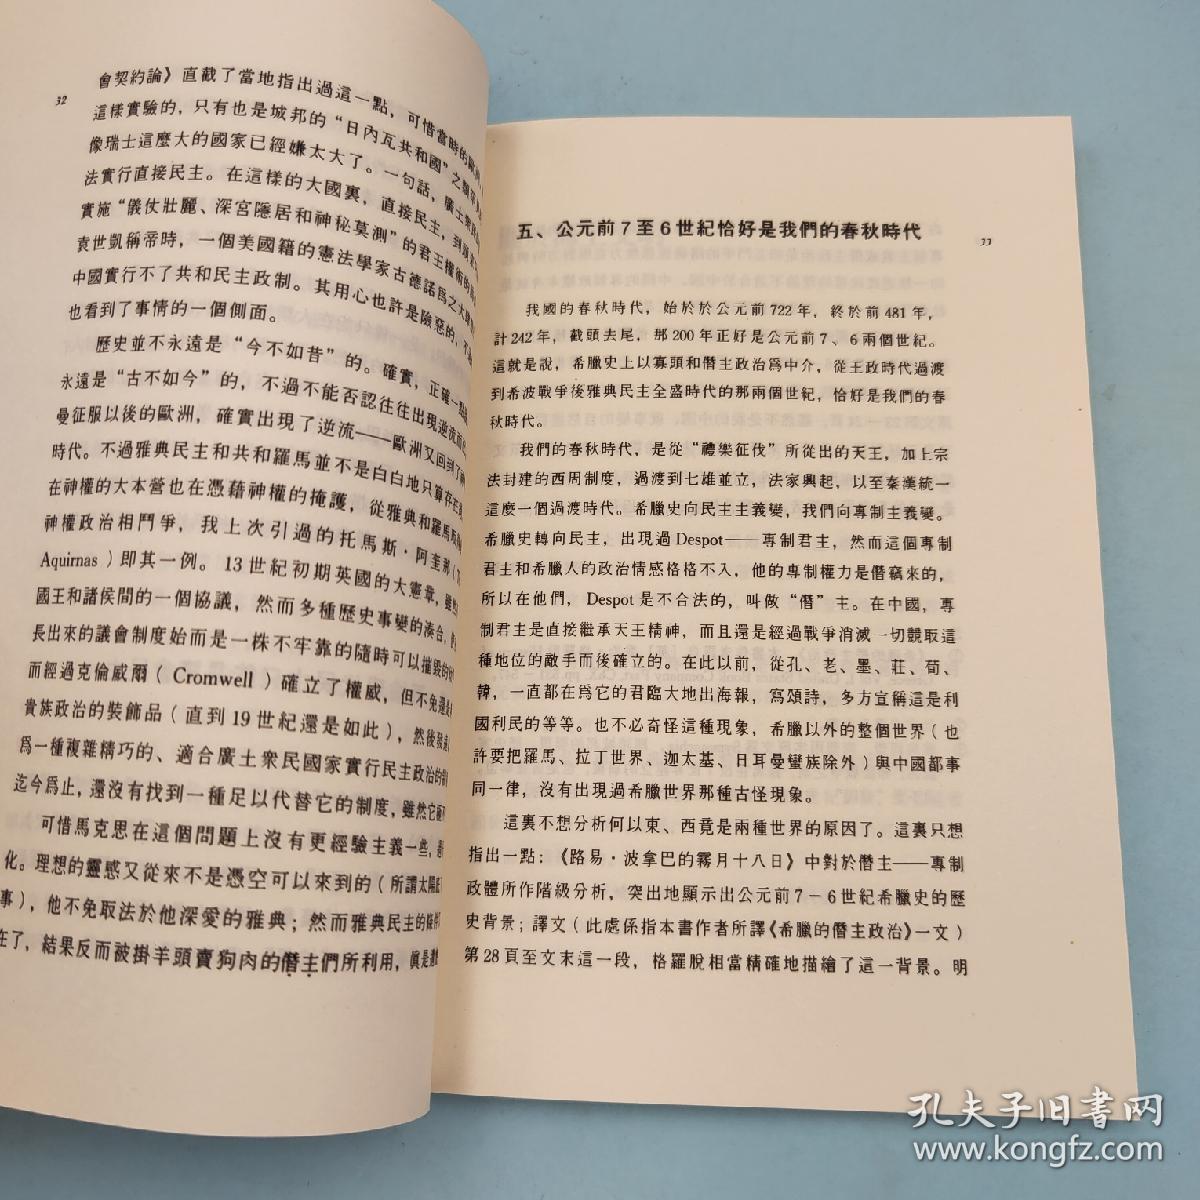 32
會契約論》直截了當地指出過這一點，可惜當時的
這樣實驗的，只有也是城邦的“日內瓦共和國”之類
像瑞士這麼大的國家已經嫌太大了。一句話，廣土衆民
法實行直接民主。在這樣的大國裏，直接民主，到
實施“儀仗壯麗、深宮隱居和神秘莫測”的君王權術的
袁世凱稱帝時，一個美國籍的憲法學家古德諾爲之大
中國實行不了共和民主政制。其用心也許是險惡的，不
也看到了事情的一個側面。
歷史並不永遠是“今不如昔”的。確實，正確一點
永遠是“古不如今”的，不過不能否認往往出現逆流
曼征服以後的歐洲，確實出現了逆流——歐洲又回到了神
時代。不過雅典民主和共和羅馬並不是白白地只算存在
在神權的大本營也在憑藉神權的掩護，從雅典和羅馬
神權政治相鬥爭，我上次引過的托馬斯·阿奎那（
Aquirnas）即其一例。13世紀初期英國的大憲章，雖
國王和諸侯間的一個協議，然而多種歷史事變的湊合，
長出來的議會制度始而是一株不牢靠的隨時可以摧毀的
而經過克倫威爾（Cromwell）確立了權威，但不免還
貴族政治的裝飾品（直到19世紀還是如此），然後發
爲一種複雜精巧的、適合廣土衆民國家實行民主政治的
迄今爲止，還沒有找到一種足以代替它的制度，雖然它
可惜馬克思在這個問題上沒有更經驗主義一些，
化。理想的靈感又從來不是憑空可以來到的（所謂太陽底
事），他不免取法於他深愛的雅典；然而雅典民主的條件
在了，結果反而被掛羊頭賣狗肉的僭主們所利用，真是
33
五、公元前7至6世紀恰好是我們的春秋時代
我國的春秋時代，始於於公元前722年，終於前481年，
計242年，截頭去尾，那200年正好是公元前7、6兩個世紀。
這就是說，希臘史上以寡頭和僭主政治爲中介，從王政時代過渡
到希波戰爭後雅典民主全盛時代的那兩個世紀，恰好是我們的春
秋時代。
我們的春秋時代，是從“禮樂征伐”所從出的天王，加上宗
法封建的西周制度，過渡到七雄並立，法家興起，以至秦漢統一
這麼一個過渡時代。希臘史向民主主義變，我們向專制主義變。
希臘史轉向民主，出現過Despot——專制君主，然而這個專制
君主和希臘人的政治情感格格不入，他的專制權力是僭竊來的，
所以在他們，Despot是不合法的，叫做“僭”主。在中國，專
制君主是直接繼承天王精神，而且還是經過戰爭消滅一切競取這
種地位的敵手而後確立的。在此以前，從孔、老、墨、莊、荀、
韓，一直都在爲它的君臨大地出海報，寫頌詩，多方宣稱這是利
國利民的等等。也不必奇怪這種現象，希臘以外的整個世界（也
許要把羅馬、拉丁世界、迦太基、日耳曼蠻族除外）與中國都事
同一律，沒有出現過希臘世界那種古怪現象。
這裏不想分析何以東、西竟是兩種世界的原因了。這裏只想
指出一點：《路易·波拿巴的霧月十八日》中對於僭主——專制
政體所作階級分析，突出地顯示出公元前7－6世紀希臘史的歷
史背景；譯文（此處係指本書作者所譯《希臘的僭主政治》一文）
第28頁至文末這一段，格羅脫相當精確地描繪了這一背景。明
孔夫子旧书网
www.kongfz.com